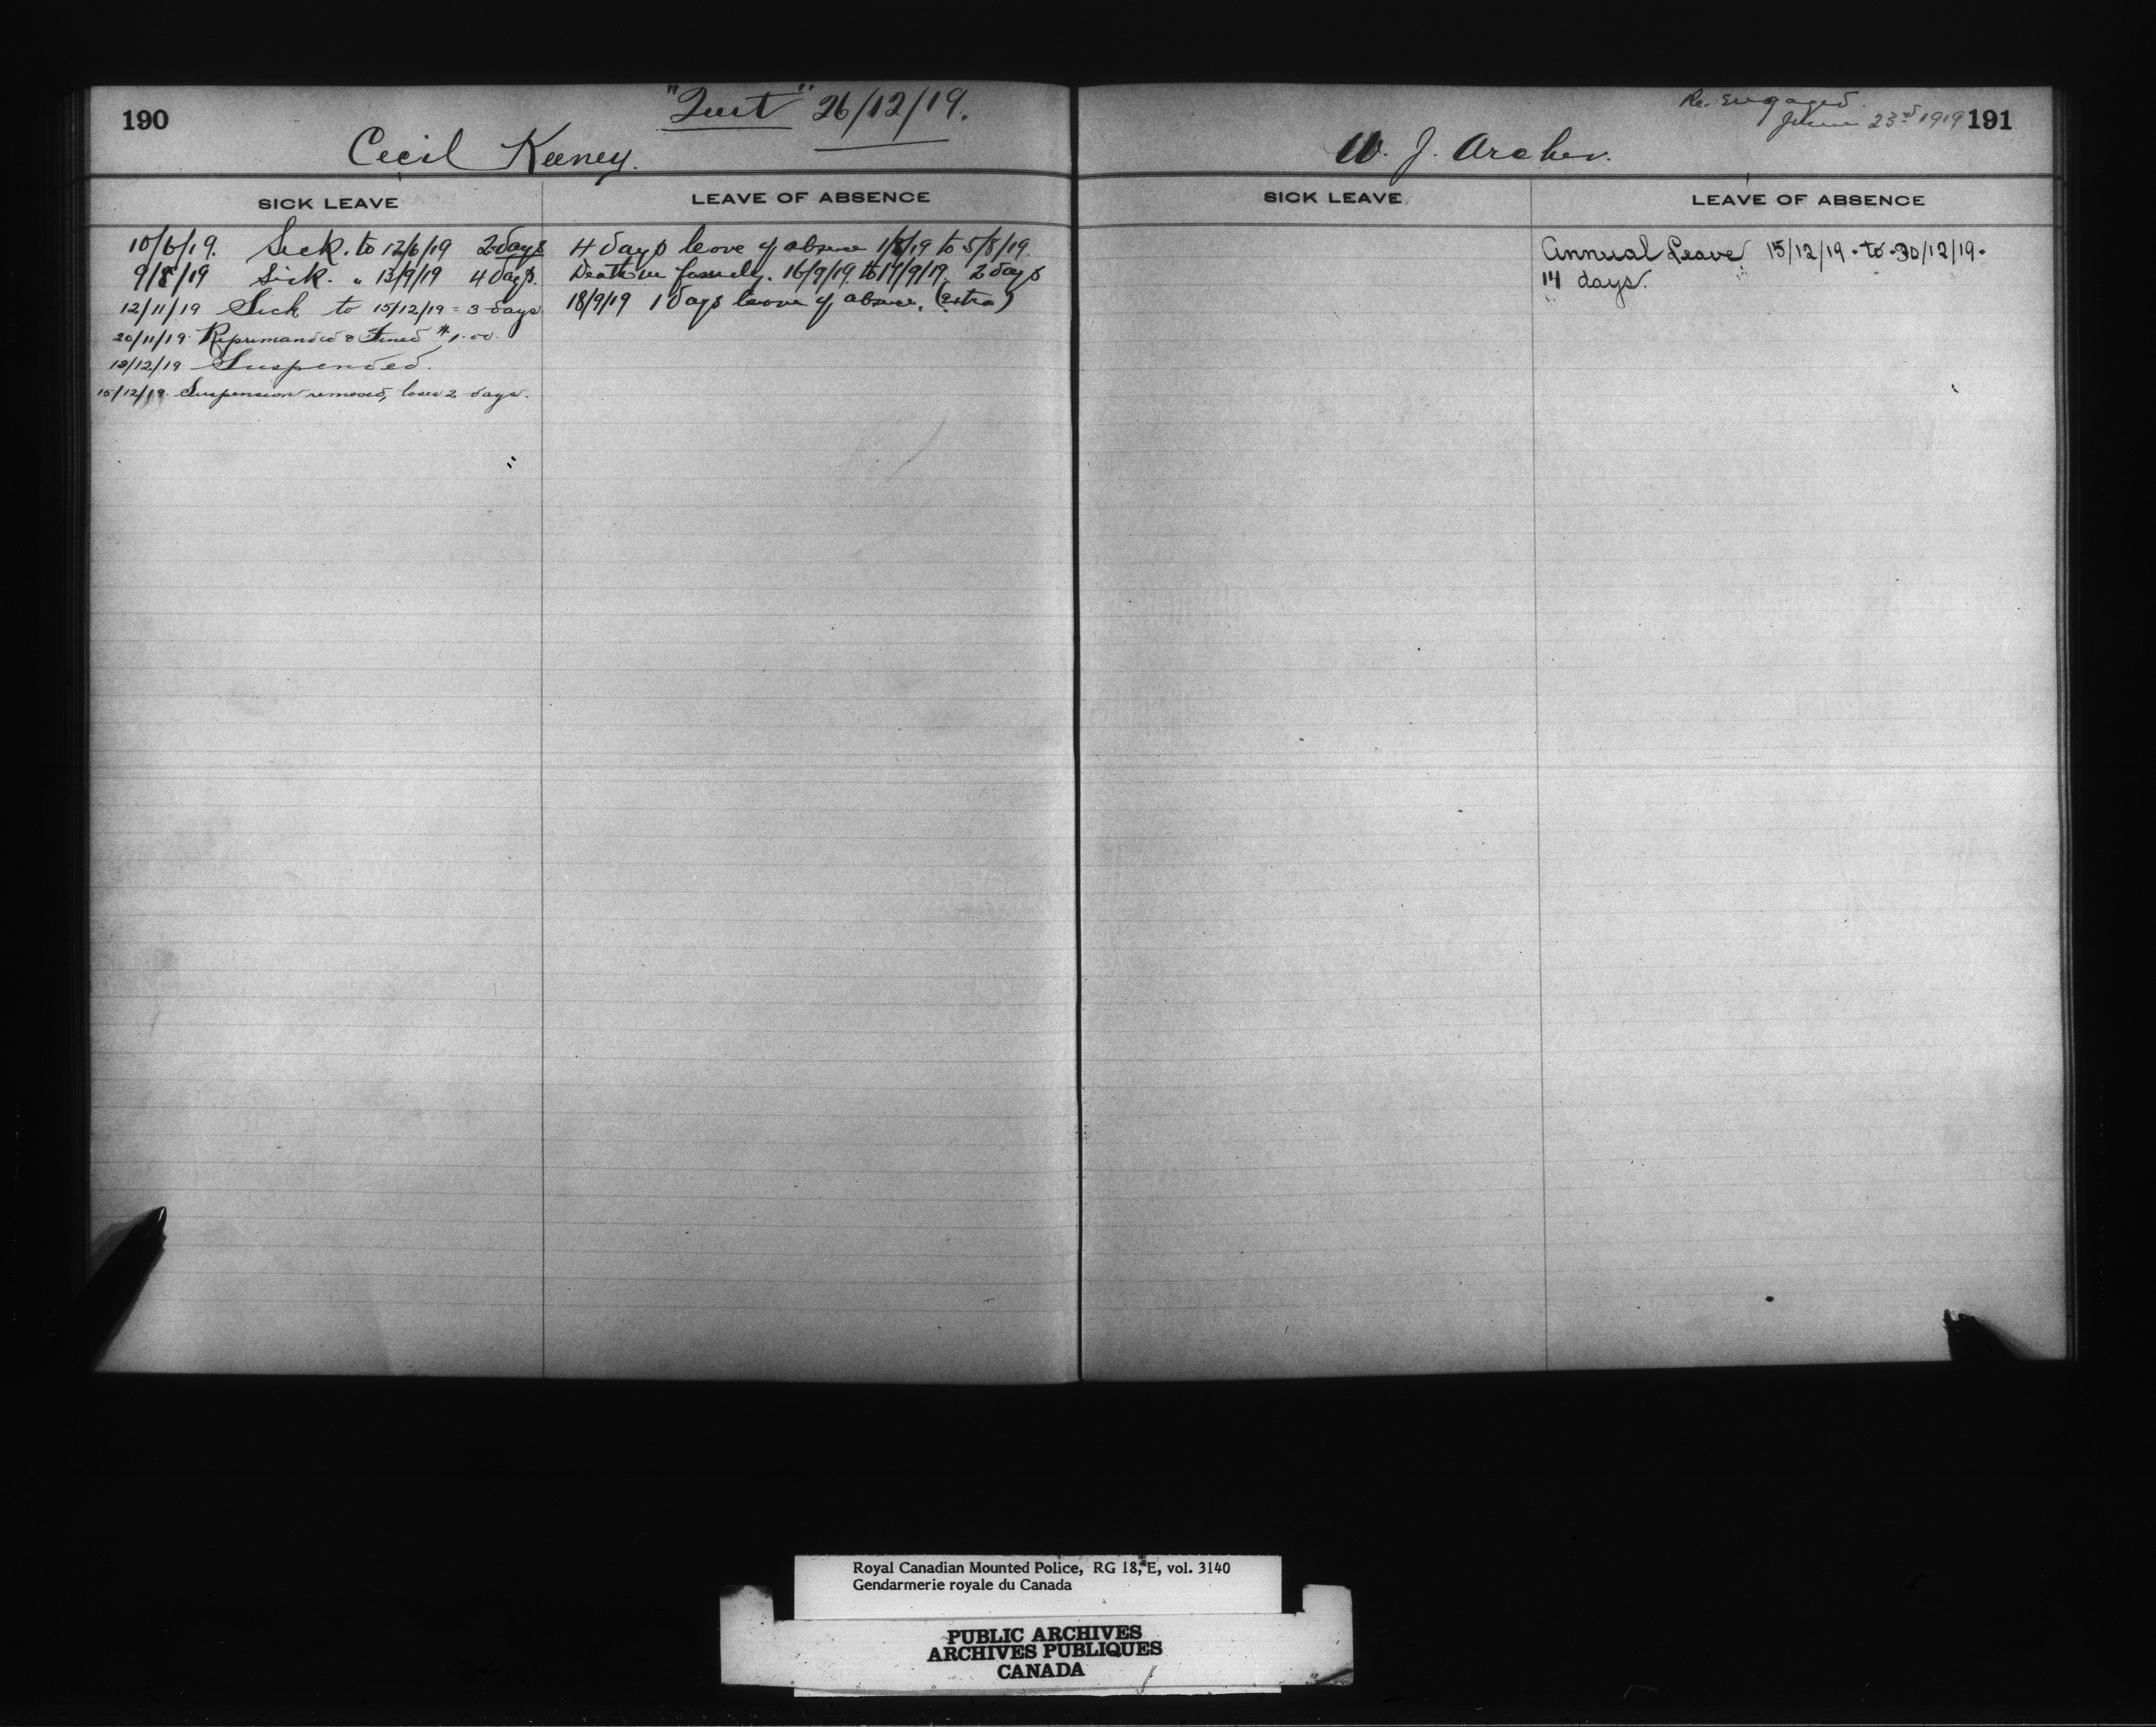 190
"Quit" 26/12/19.
Cecil Keeney.
SICK LEAVE
LEAVE OF ABSENCE
10/6/19. Sick. to 12/6/19 2 days
9/8/19 Sick. " 13/9/19 4 days.
12/11/19 Sick to 15/12/19 = 3 days
20/11/19 Reprimanded & Fined $1.00.
13/12/19 Suspended.
15/12/19. Suspension removed, loses 2 days.
4 days leave of absence 1/8/19 to 5/8/19.
Death in family. 16/9/19 to 17/9/19. 2 days
18/9/19 1 days leave of absence. (extra)
Re. engaged.
June 23rd 1919
191
W. J. Archer.
SICK LEAVE
LEAVE OF ABSENCE
Annual Leave 15/12/19. to 30/12/19.
14 days.
Royal Canadian Mounted Police, RG 18, E, vol. 3140
Gendarmerie royale du Canada
PUBLIC ARCHIVES
ARCHIVES PUBLIQUES
CANADA